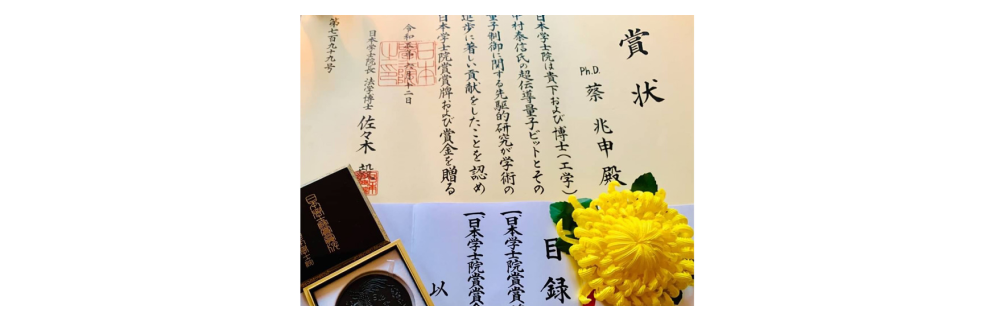 賞状
Ph.D. 蔡兆申殿
日本学士院は貴下および博士(工学)
中村泰信氏の超伝導量子ビットとその
量子制御に関する先駆的研究が学術の
進歩に著しい貢献をしたことを認め
日本学士院賞賞牌および賞金を贈る
令和五年六月十二日
日本学士院長 法学博士 佐々木 毅
第七百九十九号
目録
一日本学士院賞賞
一日本学士院賞賞金
以